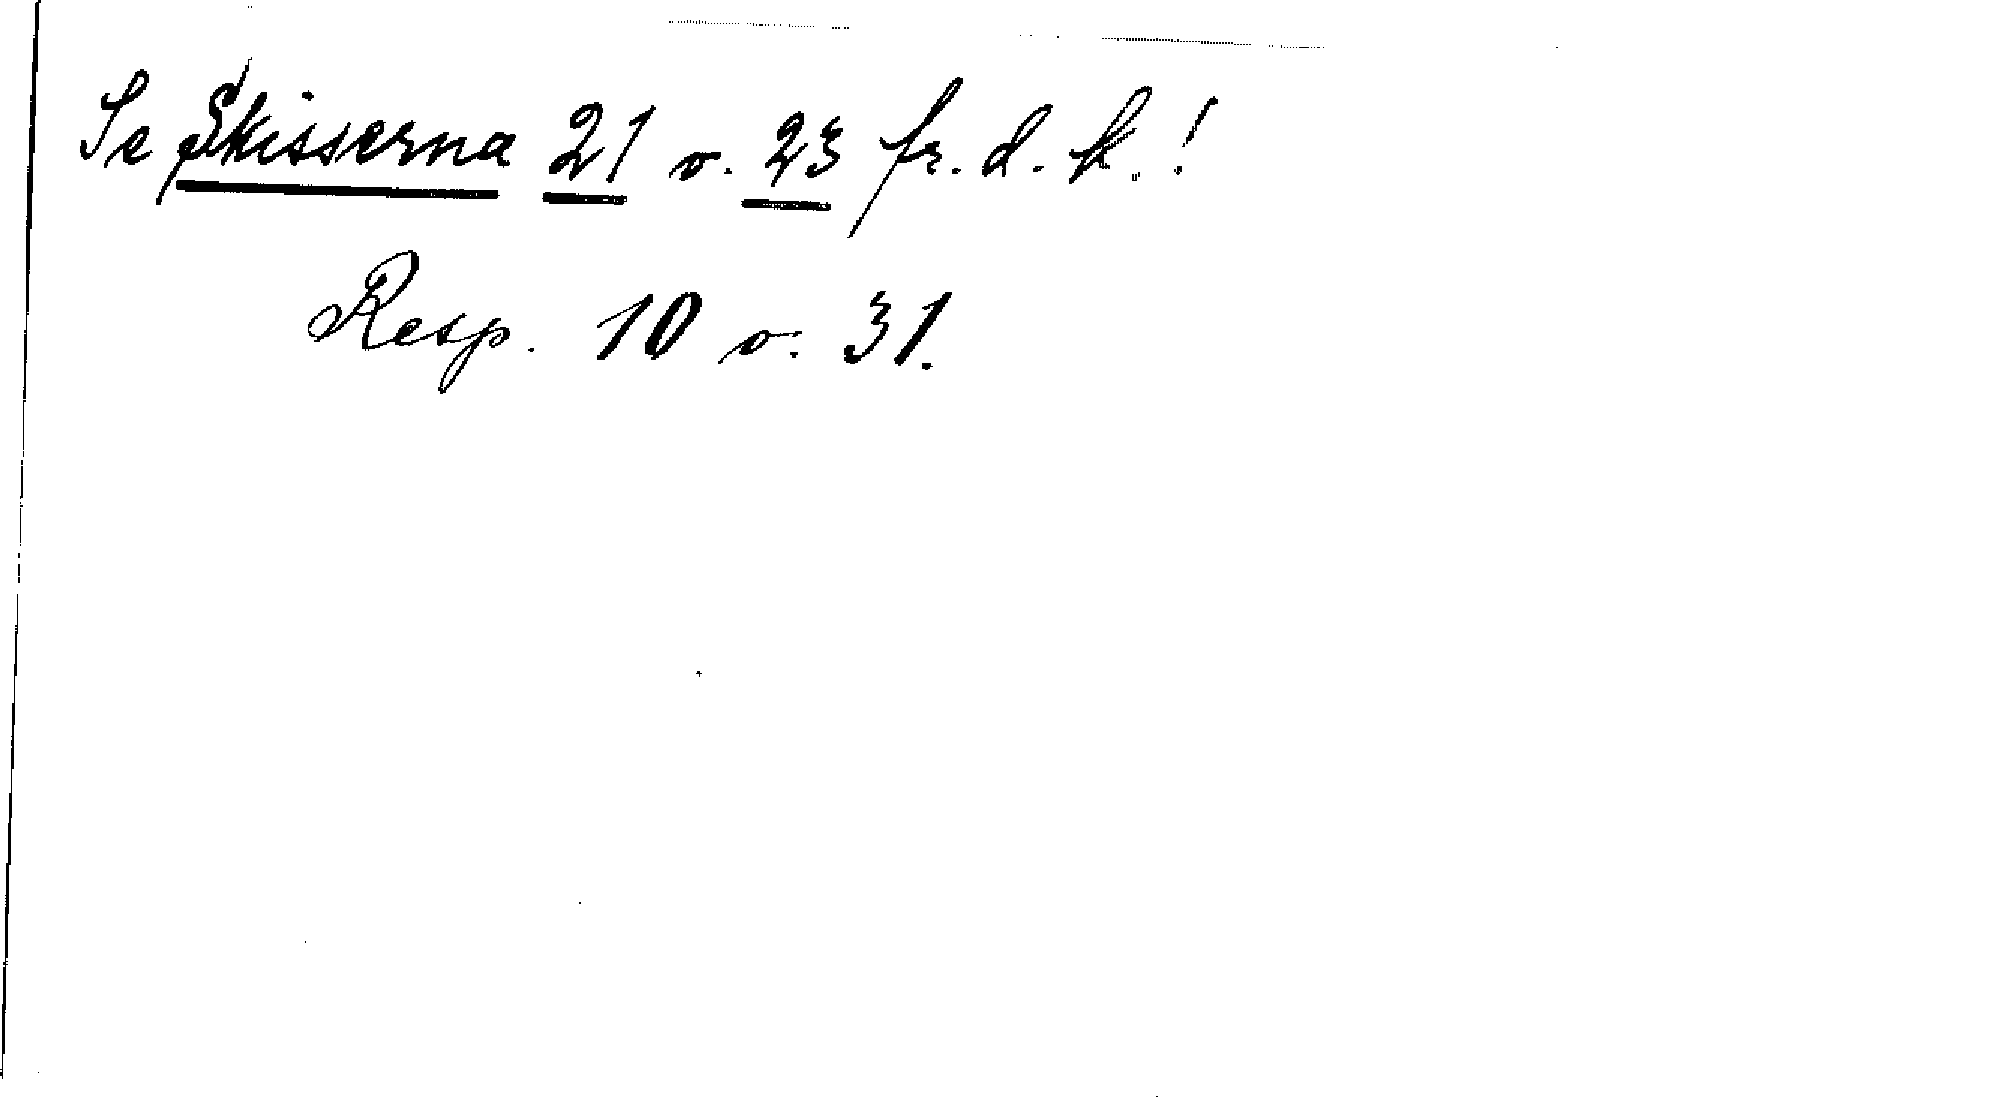 Se Skisserna 21 o. 23 fr. d. k.!
Resp. 10 o. 31.